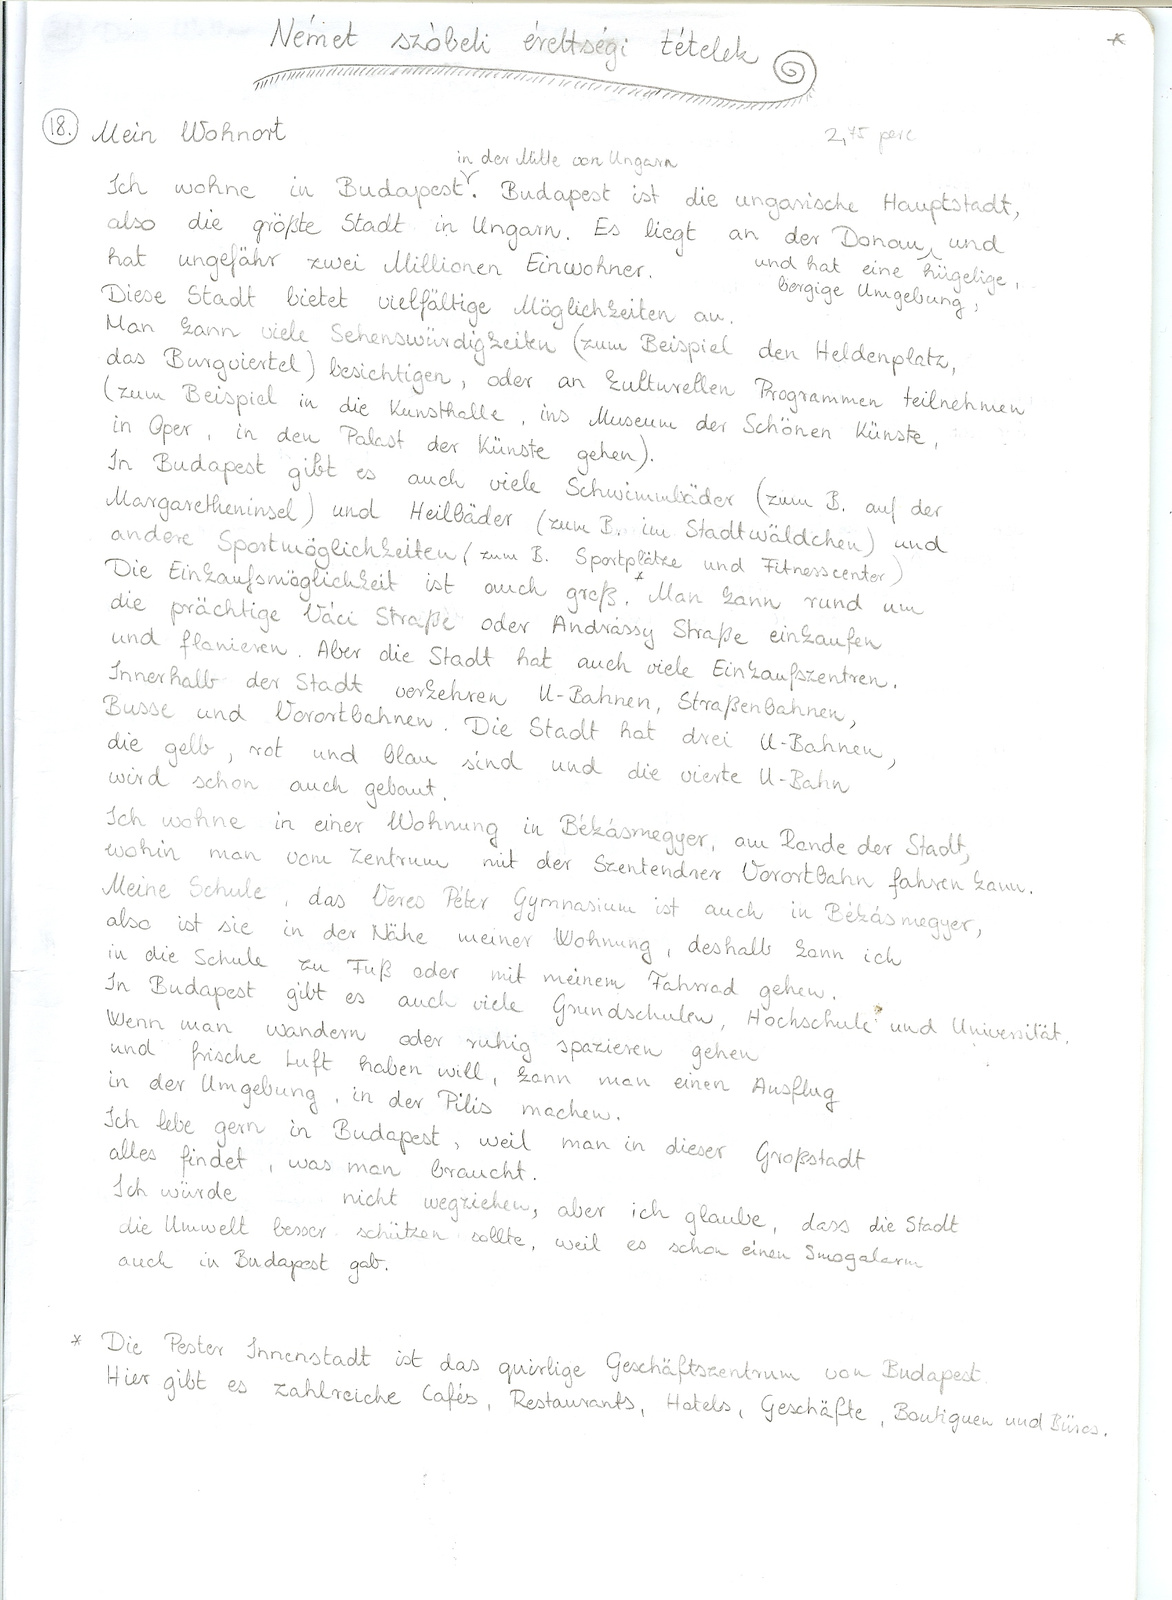 Német szóbeli érettségi tételek
*
18. Mein Wohnort
2,75 perc
in der Mitte von Ungarn
Ich wohne in Budapest. Budapest ist die ungarische Hauptstadt,
also die größte Stadt in Ungarn. Es liegt an der Donau, und
hat ungefähr zwei Millionen Einwohner.
und hat eine hügelige,
bergige Umgebung,
Diese Stadt bietet vielfältige Möglichkeiten an.
Man kann viele Sehenswürdigkeiten (zum Beispiel den Heldenplatz,
das Burgviertel) besichtigen, oder an kulturellen Programmen teilnehmen
(zum Beispiel in die Kunsthalle, ins Museum der Schönen Künste,
in Oper, in den Palast der Künste gehen).
In Budapest gibt es auch viele Schwimmbäder (zum B. auf der
Margaretheninsel) und Heilbäder (zum B. im Stadtwäldchen) und
andere Sportmöglichkeiten (zum B. Sportplätze und Fitnesscenter)
Die Einkaufsmöglichkeit ist auch groß.* Man kann rund um
die prächtige Váci Straße oder Andrássy Straße einkaufen
und flanieren. Aber die Stadt hat auch viele Einkaufszentren.
Innerhalb der Stadt verkehren U-Bahnen, Straßenbahnen,
Busse und Vorortbahnen. Die Stadt hat drei U-Bahnen,
die gelb, rot und blau sind und die vierte U-Bahn
wird schon auch gebaut.
Ich wohne in einer Wohnung in Békásmegyer, am Rande der Stadt,
wohin man vom Zentrum mit der Szentendrer Vorortbahn fahren kann.
Meine Schule, das Veres Péter Gymnasium ist auch in Békásmegyer,
also ist sie in der Nähe meiner Wohnung, deshalb kann ich
in die Schule zu Fuß oder mit meinem Fahrrad gehen.
In Budapest gibt es auch viele Grundschulen, Hochschule und Universität.
Wenn man wandern oder ruhig spazieren gehen
und frische Luft haben will, kann man einen Ausflug
in der Umgebung, in der Pilis machen.
Ich lebe gern in Budapest, weil man in dieser Großstadt
alles findet, was man braucht.
Ich würde nicht wegziehen, aber ich glaube, dass die Stadt
die Umwelt besser schützen sollte, weil es schon einen Smogalarm
auch in Budapest gab.
* Die Pester Innenstadt ist das quirlige Geschäftszentrum von Budapest.
Hier gibt es zahlreiche Cafés, Restaurants, Hotels, Geschäfte, Boutiquen und Büros.